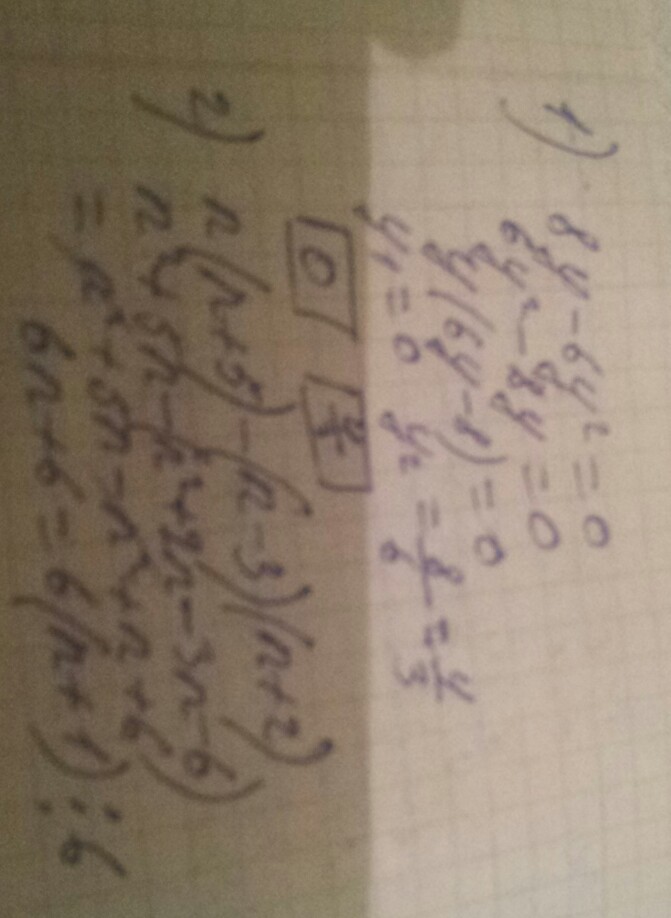 1) 8y - 6y² = 0
6y² - 8y = 0
y(6y - 8) = 0
y₁ = 0 y₂ = 8/6 = 4/3
0
2) n(n+5) - (n-3)(n+2)
n² + 5n - (n² + 2n - 3n - 6)
= n² + 5n - n² + n + 6
6n + 6 = 6(n+1) ⋮ 6